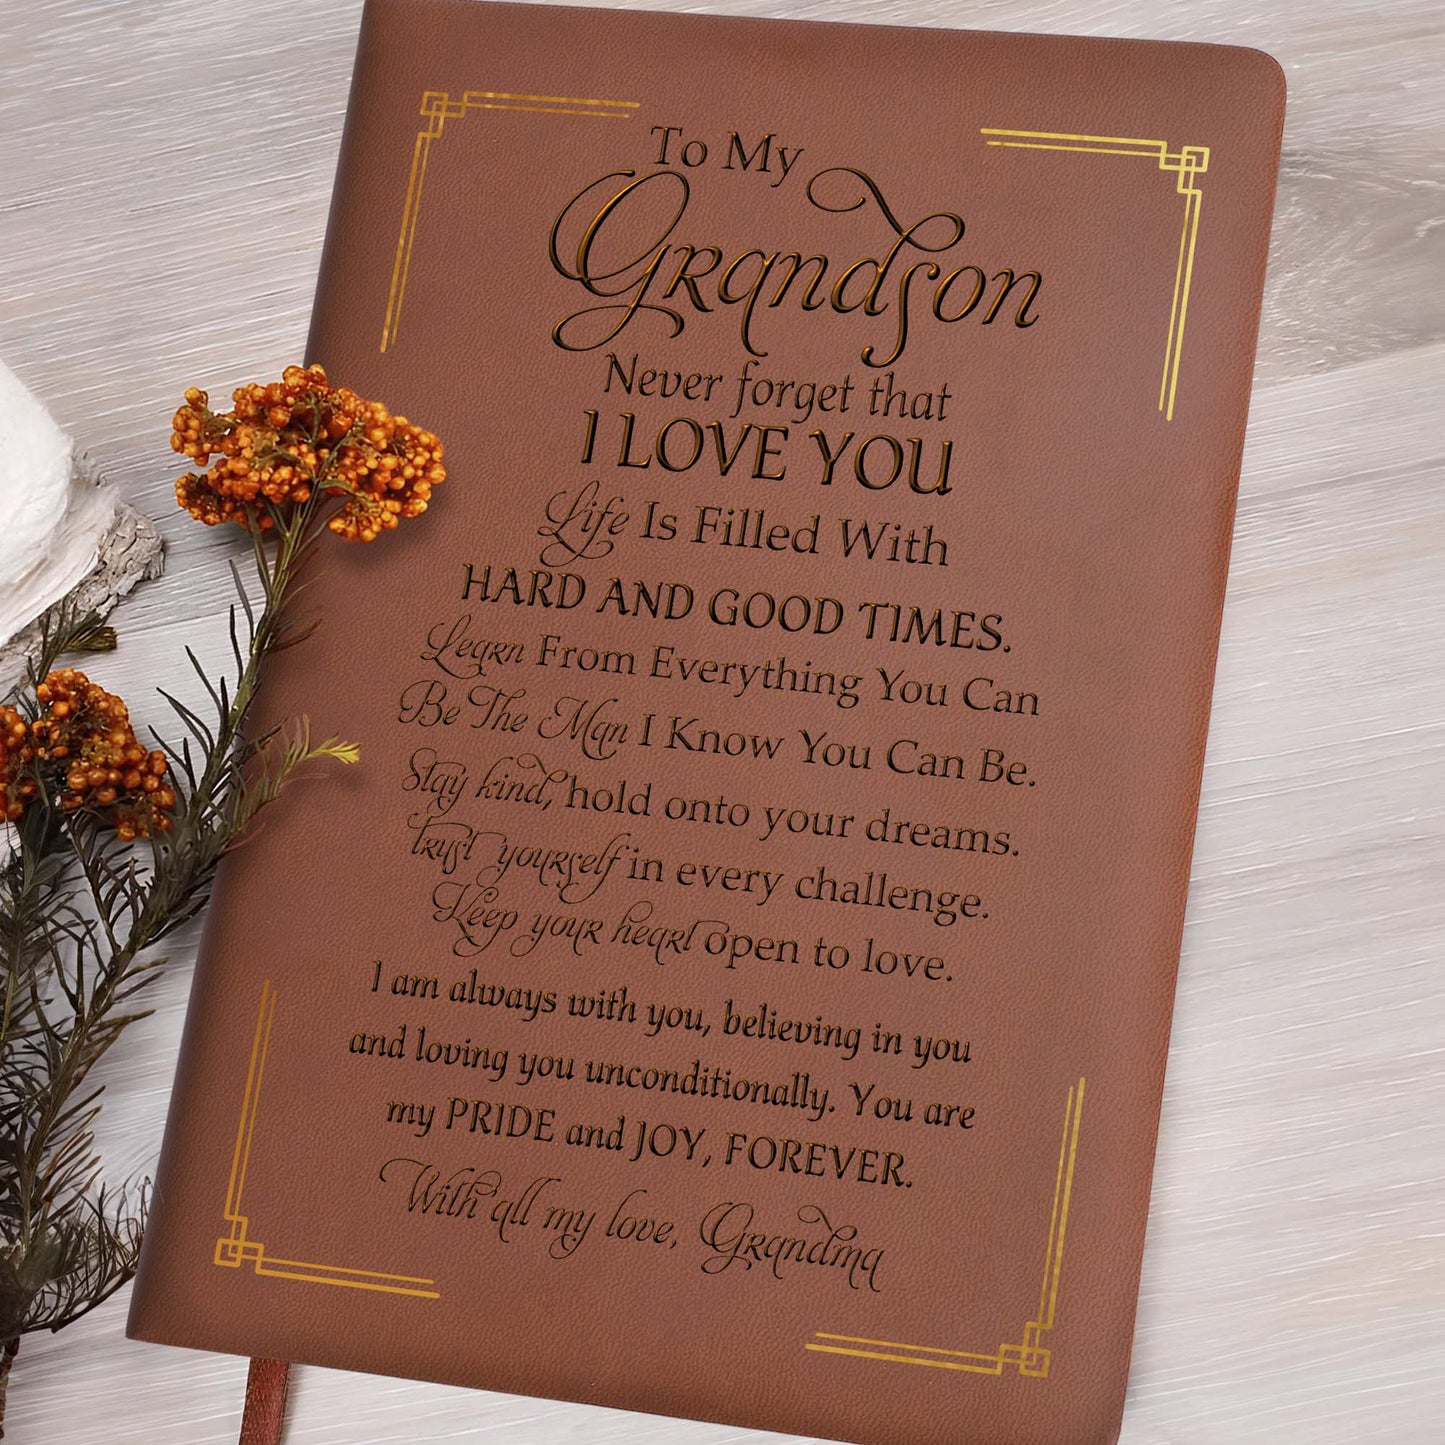 To My
Grandson
Never forget that
I LOVE YOU
Life Is Filled With
HARD AND GOOD TIMES.
Learn From Everything You Can
Be The Man I Know You Can Be.
Stay kind, hold onto your dreams.
Trust yourself in every challenge.
Keep your heart open to love.
I am always with you, believing in you
and loving you unconditionally. You are
my PRIDE and JOY, FOREVER.
With all my love, Grandma